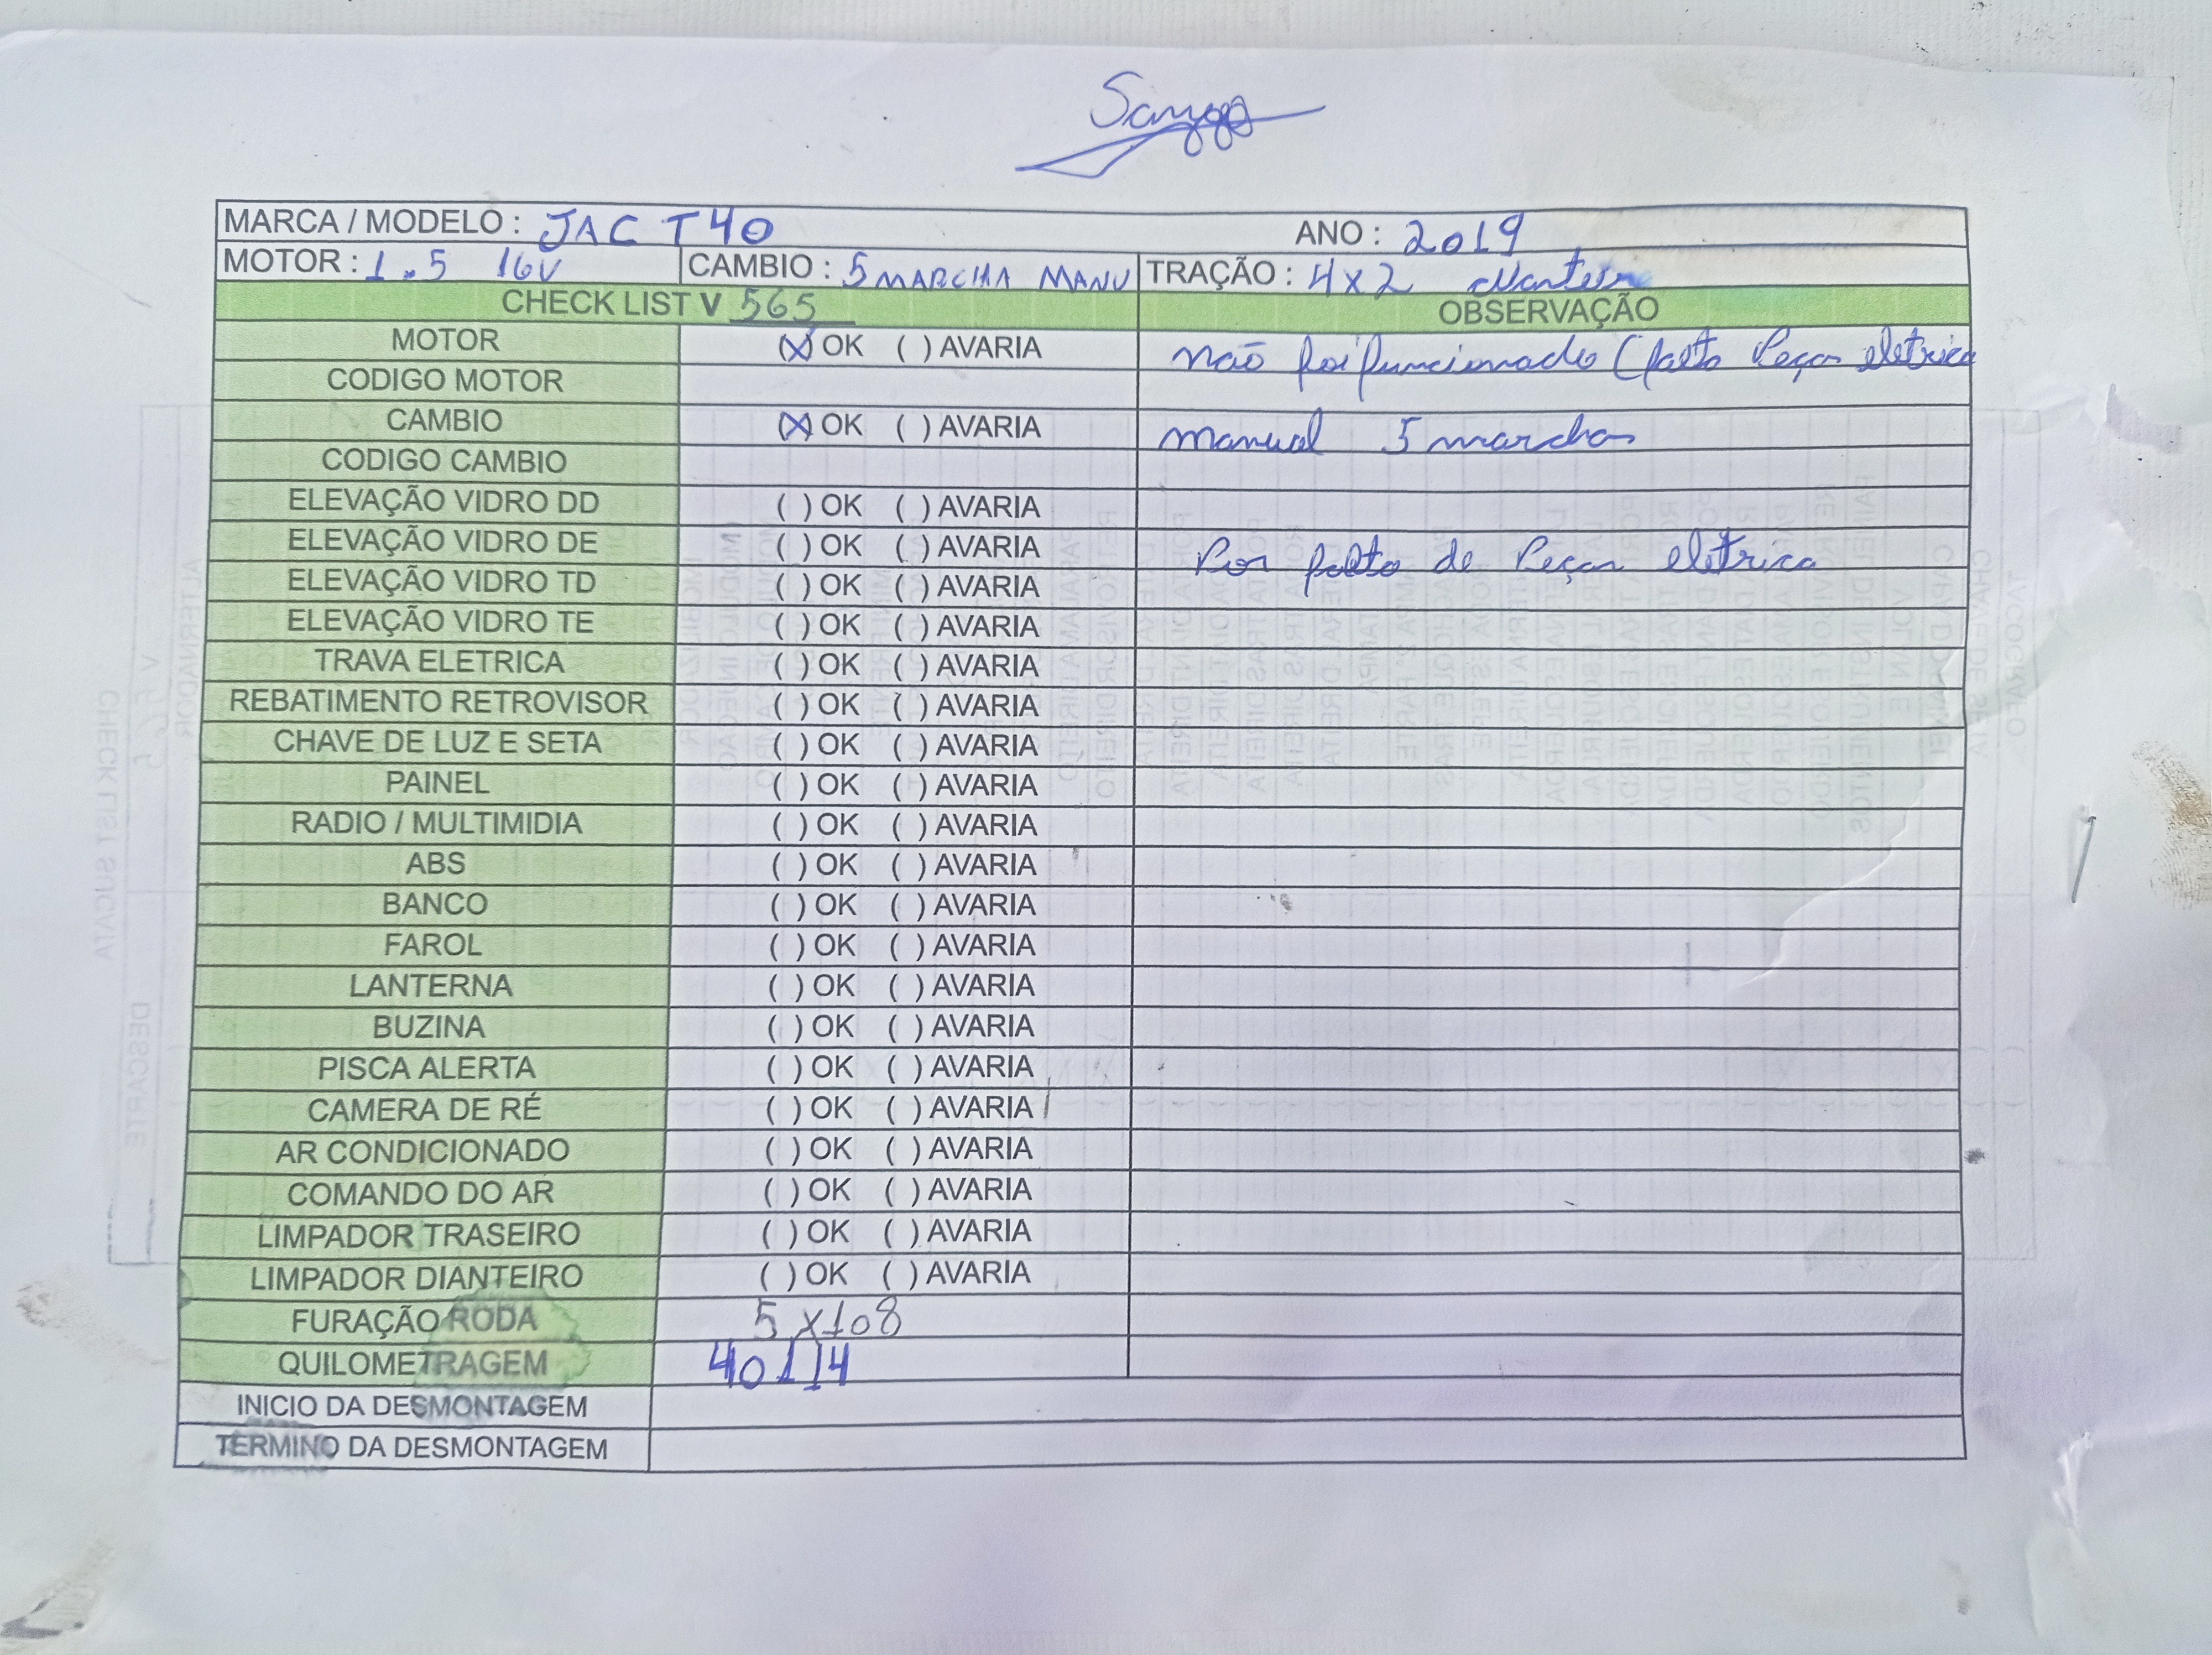 MARCA / MODELO : JAC T40 ANO : 2019
MOTOR : 1.5 16V CAMBIO : 5 MARCHA MANU TRAÇÃO : 4x2
CHECK LIST V 565 OBSERVAÇÃO
MOTOR (X) OK ( ) AVARIA não foi funcionado (falta Peças eletrica
CODIGO MOTOR
CAMBIO (X) OK ( ) AVARIA manual 5 marchas
CODIGO CAMBIO
ELEVAÇÃO VIDRO DD ( ) OK ( ) AVARIA
ELEVAÇÃO VIDRO DE ( ) OK ( ) AVARIA Por falta de Peças eletrica
ELEVAÇÃO VIDRO TD ( ) OK ( ) AVARIA
ELEVAÇÃO VIDRO TE ( ) OK ( ) AVARIA
TRAVA ELETRICA ( ) OK ( ) AVARIA
REBATIMENTO RETROVISOR ( ) OK ( ) AVARIA
CHAVE DE LUZ E SETA ( ) OK ( ) AVARIA
PAINEL ( ) OK ( ) AVARIA
RADIO / MULTIMIDIA ( ) OK ( ) AVARIA
ABS ( ) OK ( ) AVARIA
BANCO ( ) OK ( ) AVARIA
FAROL ( ) OK ( ) AVARIA
LANTERNA ( ) OK ( ) AVARIA
BUZINA ( ) OK ( ) AVARIA
PISCA ALERTA ( ) OK ( ) AVARIA
CAMERA DE RÉ ( ) OK ( ) AVARIA
AR CONDICIONADO ( ) OK ( ) AVARIA
COMANDO DO AR ( ) OK ( ) AVARIA
LIMPADOR TRASEIRO ( ) OK ( ) AVARIA
LIMPADOR DIANTEIRO ( ) OK ( ) AVARIA
FURAÇÃO RODA 5 x108
QUILOMETRAGEM 40114
INICIO DA DESMONTAGEM
TERMINO DA DESMONTAGEM